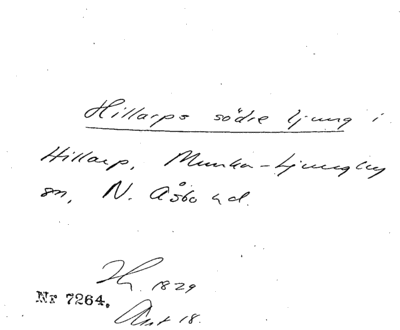 Hillarps södre ljung i
Hillarp, Munka-Ljungby
sn, N. Åsbo hd.
1829
Nr 7264.
Akt 18.